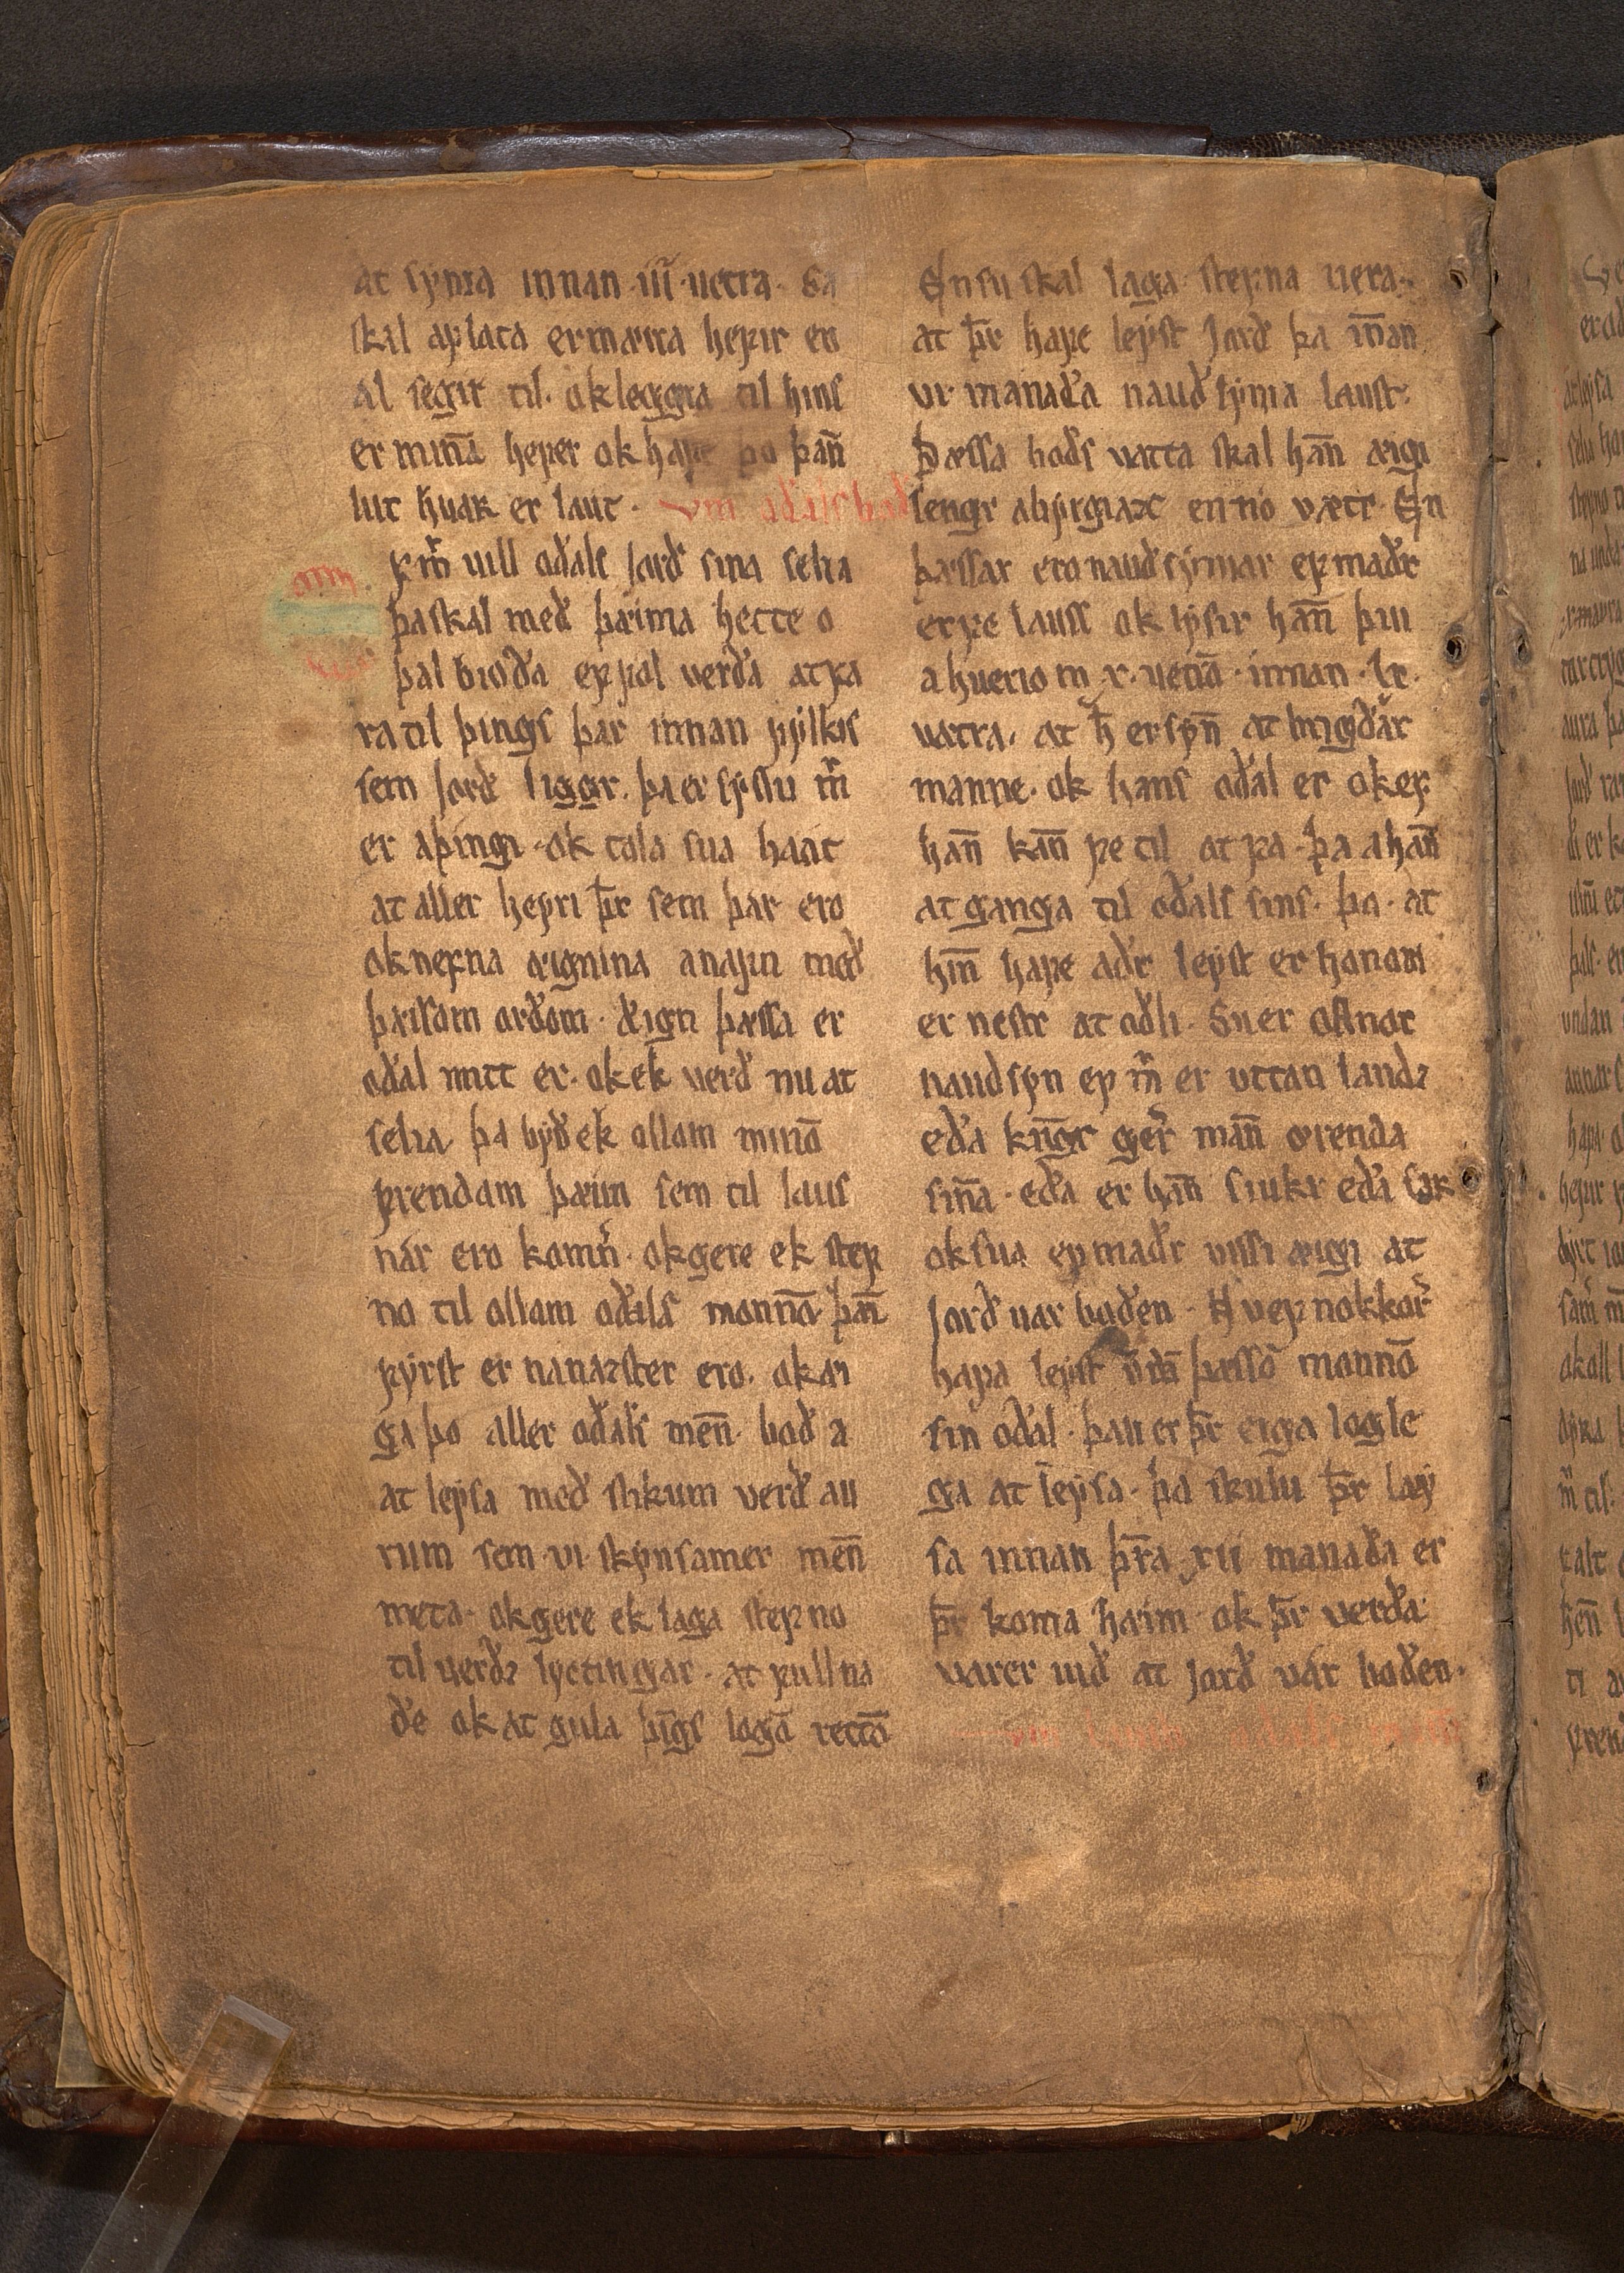 at synia innan .iii. uetra. Sa
skal aflata er mæira hefir en
al segir til. ok leggia til hins
er minna hefer ok hafe þo þan̄
lut huar er laut. vm odals bod
Ef m̄ uill oðals Jorð sina selia
þa skal með þæima hette o
þal bioða ef fal verða at fa
ra til þings þar innan fylkis
sem Jorð liggr. þa er syslu m̄
er a þingi. ok tala sua haat
at aller heyri þr̄ sem þar ero
ok nefna æignina a nafn með
þæisom orðom. Æign þæssa er
oðal mitt er. ok ek verð nu at
selia þa byð ek ollom minō
frendom þæim sem til laus
nar ero komn̄. ok gere ek stef
no til ollom oðals monnō þan̄
fyrst er nanazster ero. ok æi
ga þo aller oðals men̄ boð a
at leysa með slikum verð au
rum sem .vi. skynsamer men̄
meta. ok gere ek laga stefno
til uerdz lyctingar. at full na
ðe ok at gula þīgs logō rettō
En su skal laga stefna uera.
at þr̄ hafe leyst Jorð þa in̄an
vi. manaða nauðsynia laust.
Þæssa boðs vatta skal han̄ æigi
lengr abyrgiazc en no vætr. En
þæssar ero nauðsyniar ef maðr
er fe lauss ok lysir han̄ þui
a huerio m x. uetrō innan. lx.
vætra. at h̄ er syn̄ at brigðar
manne. ok hans oðal er ok ef
han̄ kan̄ fe til at fa. þa a han̄
at ganga til oðals sins. þo at
hin̄ hafe aðr leyst er hanom
er nestr at oðli. Su er ōnnor
nauðsyn ef m̄ er vttan landz
eða kn̄gr ger̄ man̄ ørenda
sin̄a. eða er han̄ siukr eða sar
ok sua ef maðr vissi æigi at
Jorð uar boðen. Nu ef nokkor̄
hafa leyst vnd̄ þæssō monnō
sin oðal. þau er þr̄ eiga logle
ga at leysa. þa skulu þr̄ løy
sa innan þr̄ra .xii manaða er
þr̄ koma haim. ok þr̄ verða
varer uið at Jorð var boðen.